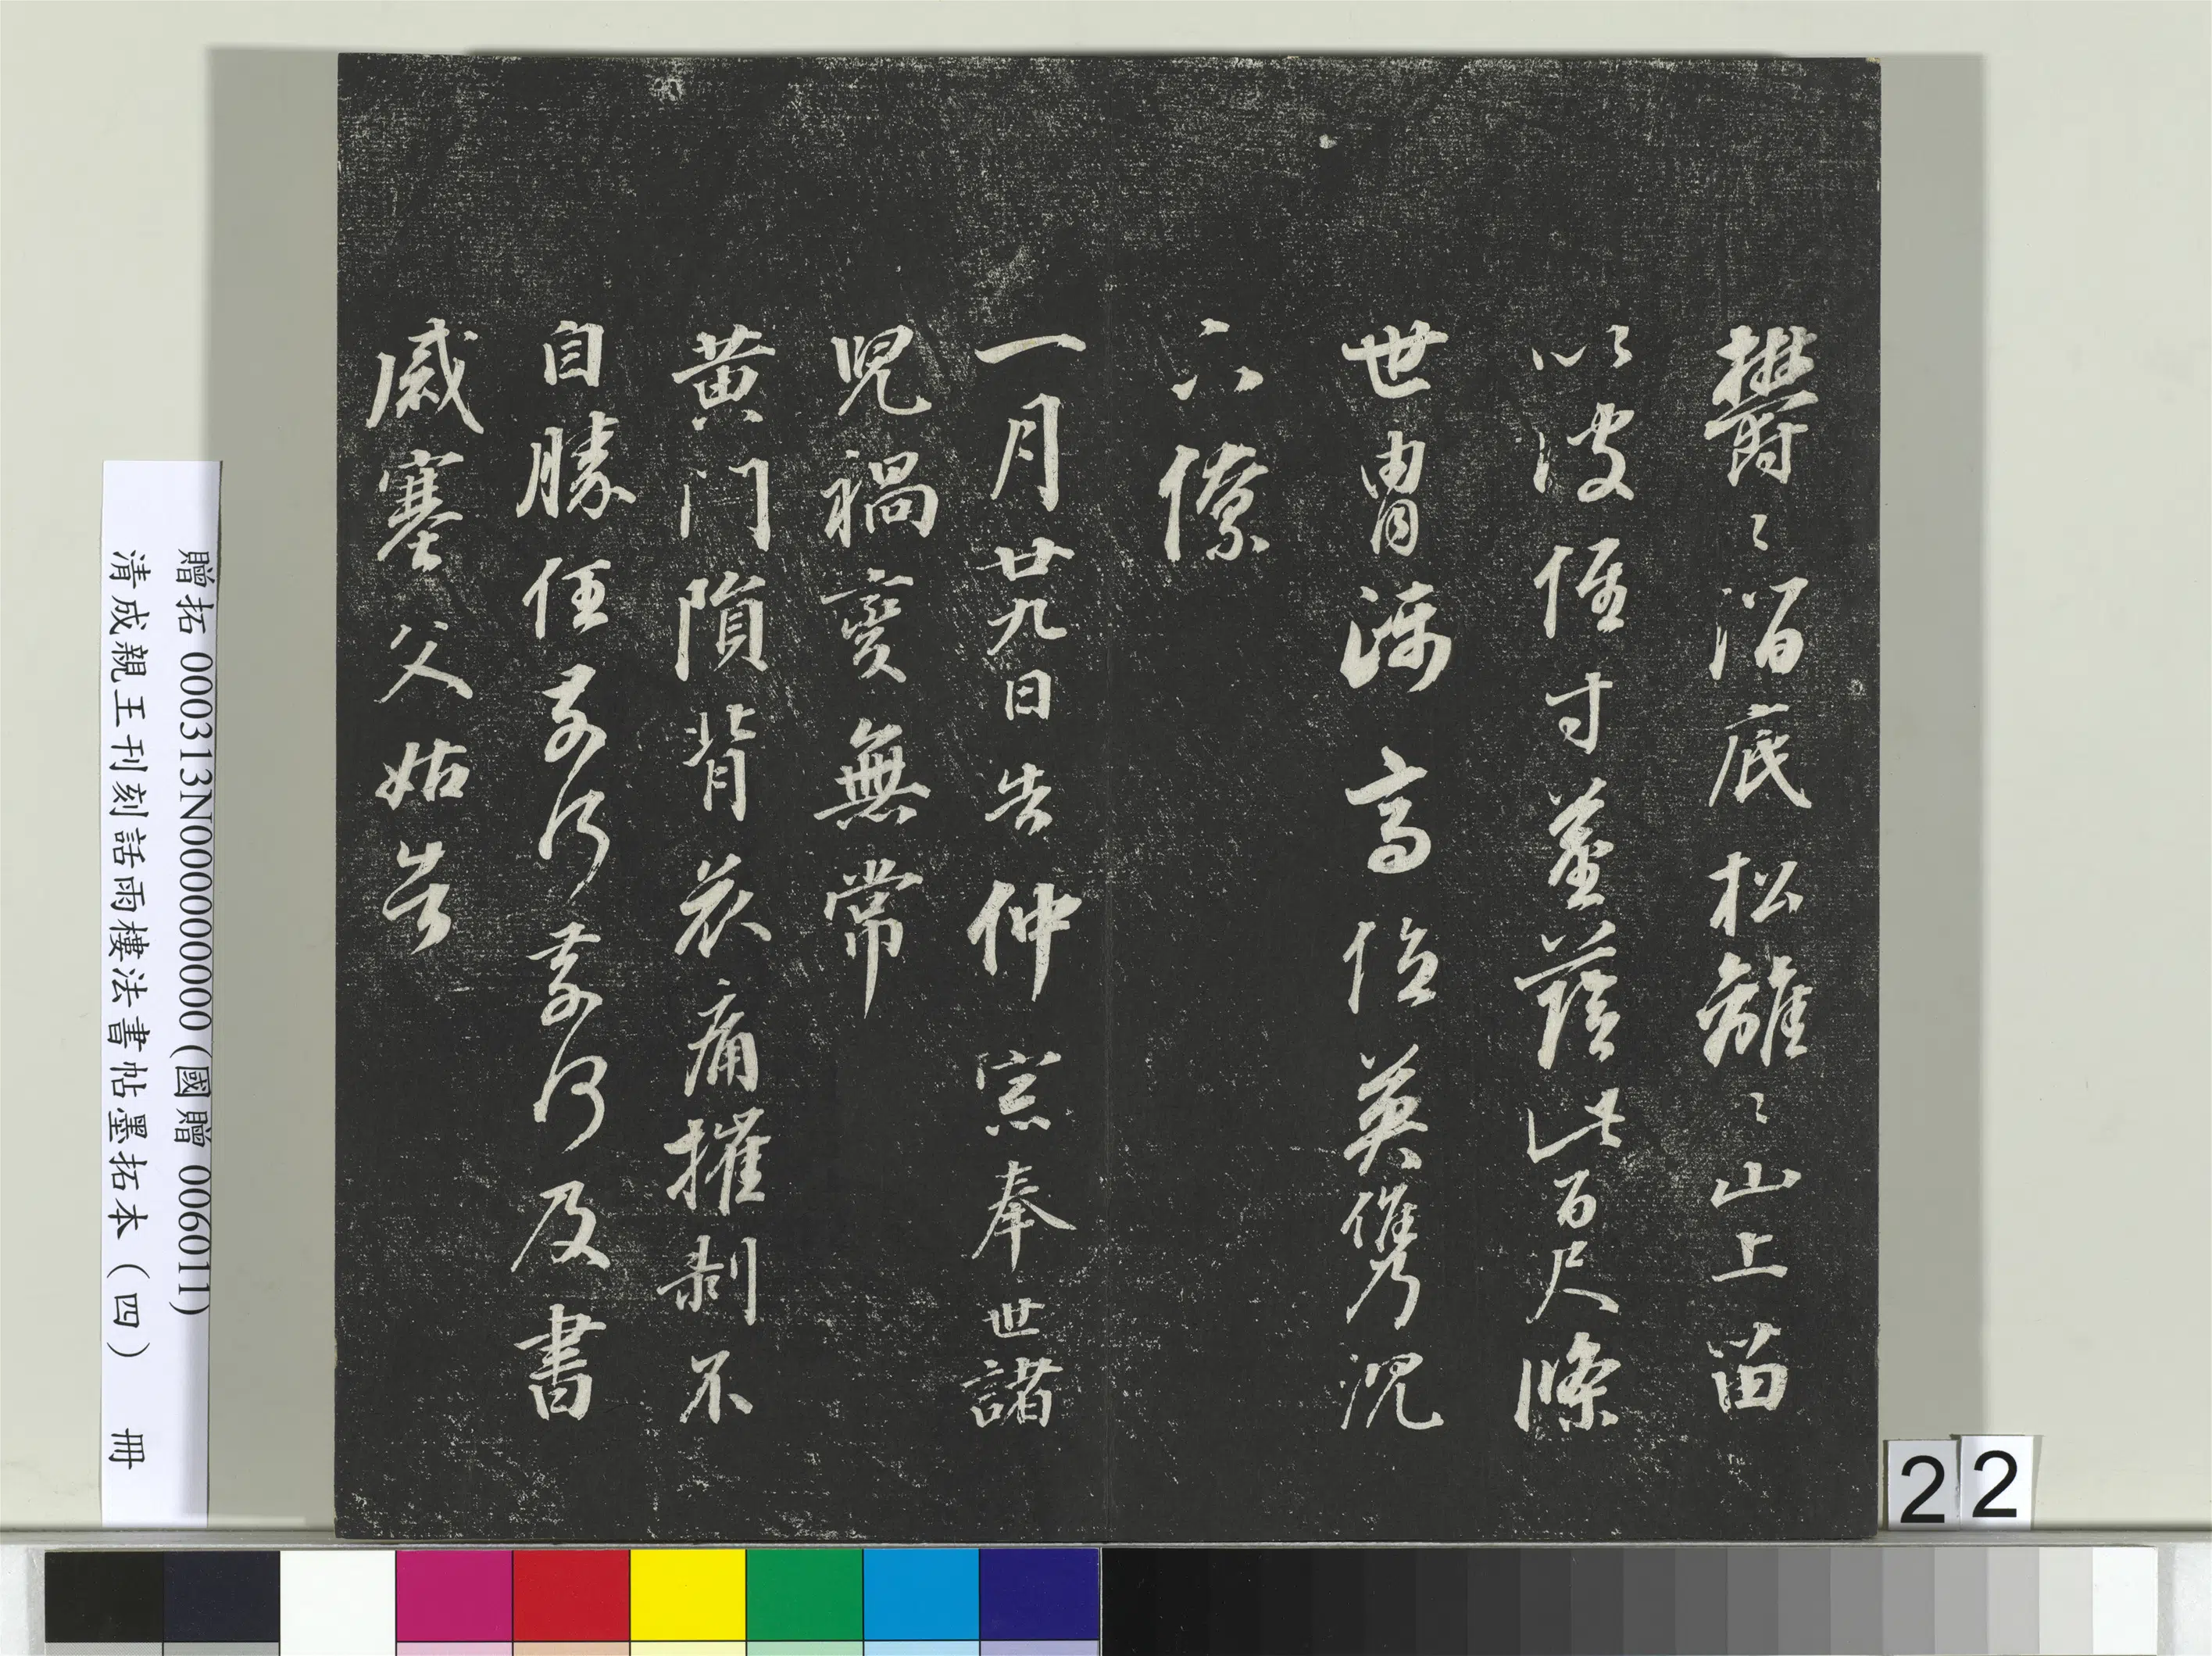 鬱〻澗底松離〻山上苗
以彼徑寸莖蔭此百尺條
世冑躡高位英俊沉
下僚
一月廿九日告仲宗奉世諸
兒禍變無常
黃門隕背哀痛摧剥不
自勝任奈何奈何及書
感塞父姑告
贈拓 000313N000000000 (國贈 006011)
清成親王刊刻話雨樓法書帖墨拓本(四) 冊
22